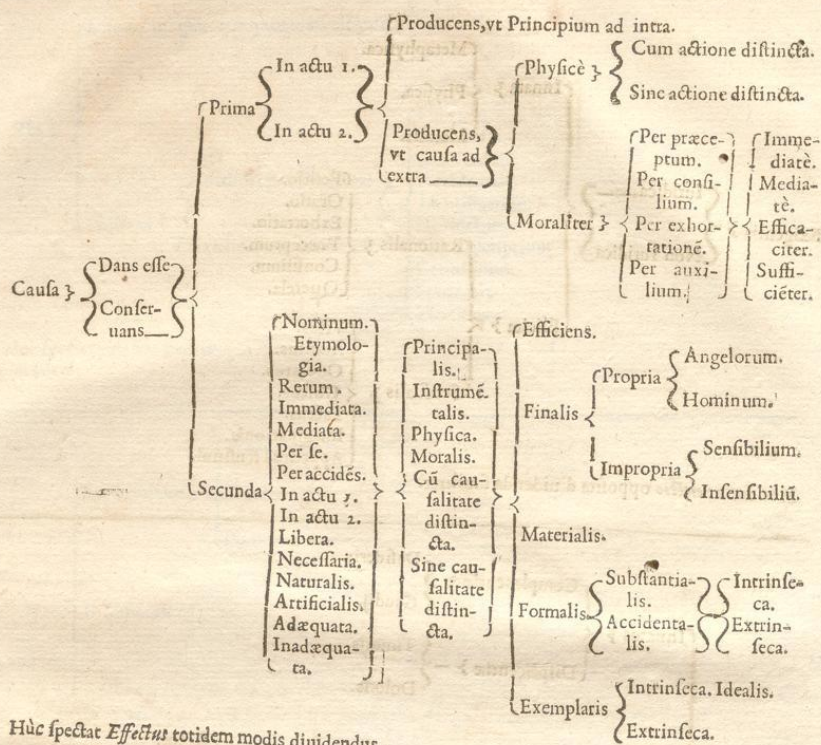 Causa
Dans esse
Conser-
uans
Prima
In actu 1.
In actu 2.
Producens, vt Principium ad intra.
Producens,
vt causa ad
extra
Physicè
Cum actione distincta.
Sine actione distincta.
Moraliter
Per præce-
ptum.
Per consi-
lium.
Per exhor-
tationẽ.
Per auxi-
lium.
Imme-
diatè.
Media-
tè.
Effica-
citer.
Suffi-
ciẽter.
Secunda
Nominum.
Etymolo-
gia.
Rerum.
Immediata.
Mediata.
Per se.
Per accidẽs.
In actu 1.
In actu 2.
Libera.
Necessaria.
Naturalis.
Artificialis.
Adæquata.
Inadæqua-
ta.
Principa-
lis.
Instrumẽ-
talis.
Physica.
Moralis.
Cũ cau-
salitate
distin-
cta.
Sine cau-
salitate
distin-
cta.
Efficiens.
Finalis
Propria
Angelorum.
Hominum.
Impropria
Sensibilium.
Insensibiliũ.
Materialis.
Formalis.
Substantia-
lis.
Accidenta-
lis.
Intrinse-
ca.
Extrin-
seca.
Exemplaris
Intrinseca. Idealis.
Extrinseca.
Hùc spectat Effectus totidem modis diuidendus